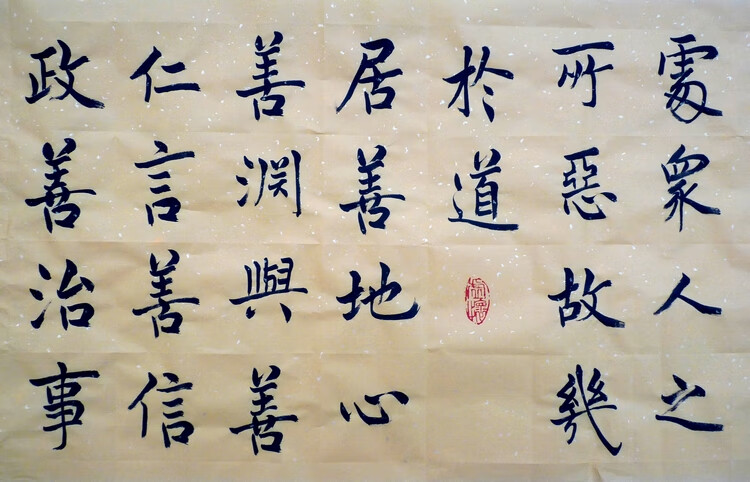 處眾人之
所惡故幾
於道
居善地心
善淵與善
仁言善信
政善治事